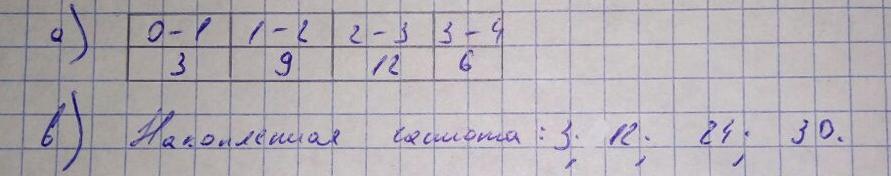 а) 0-1 1-2 2-3 3-4
3 9 12 6
в) Накопленная частота: 3; 12; 24; 30.